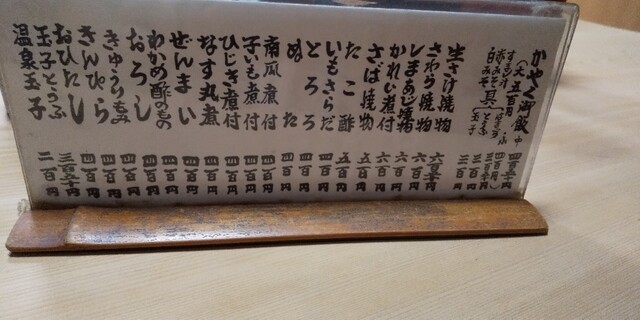 かやく御飯 中 四百五十円
(大 五百円)
すまし汁 四百円
赤みそ 三百五十円
白みそ 具 とうふ 玉子 三百円
生さけ焼物 六百五十円
さわら焼物 六百円
しまあじ焼物 六百円
かれい煮付 六百円
さば焼物 五百円
たこ酢 五百円
いもさらだ 四百円
とろろ 四百円
ぬた 四百円
南瓜煮付 四百円
子いも煮付 四百円
ひじき煮付 四百円
なす丸煮 四百円
ぜんまい 四百円
わかめ酢のもの 四百円
おろし 四百円
きゅうりもみ 四百円
きんぴら 四百円
おひたし 四百円
玉子とうふ 三百五十円
温泉玉子 二百円